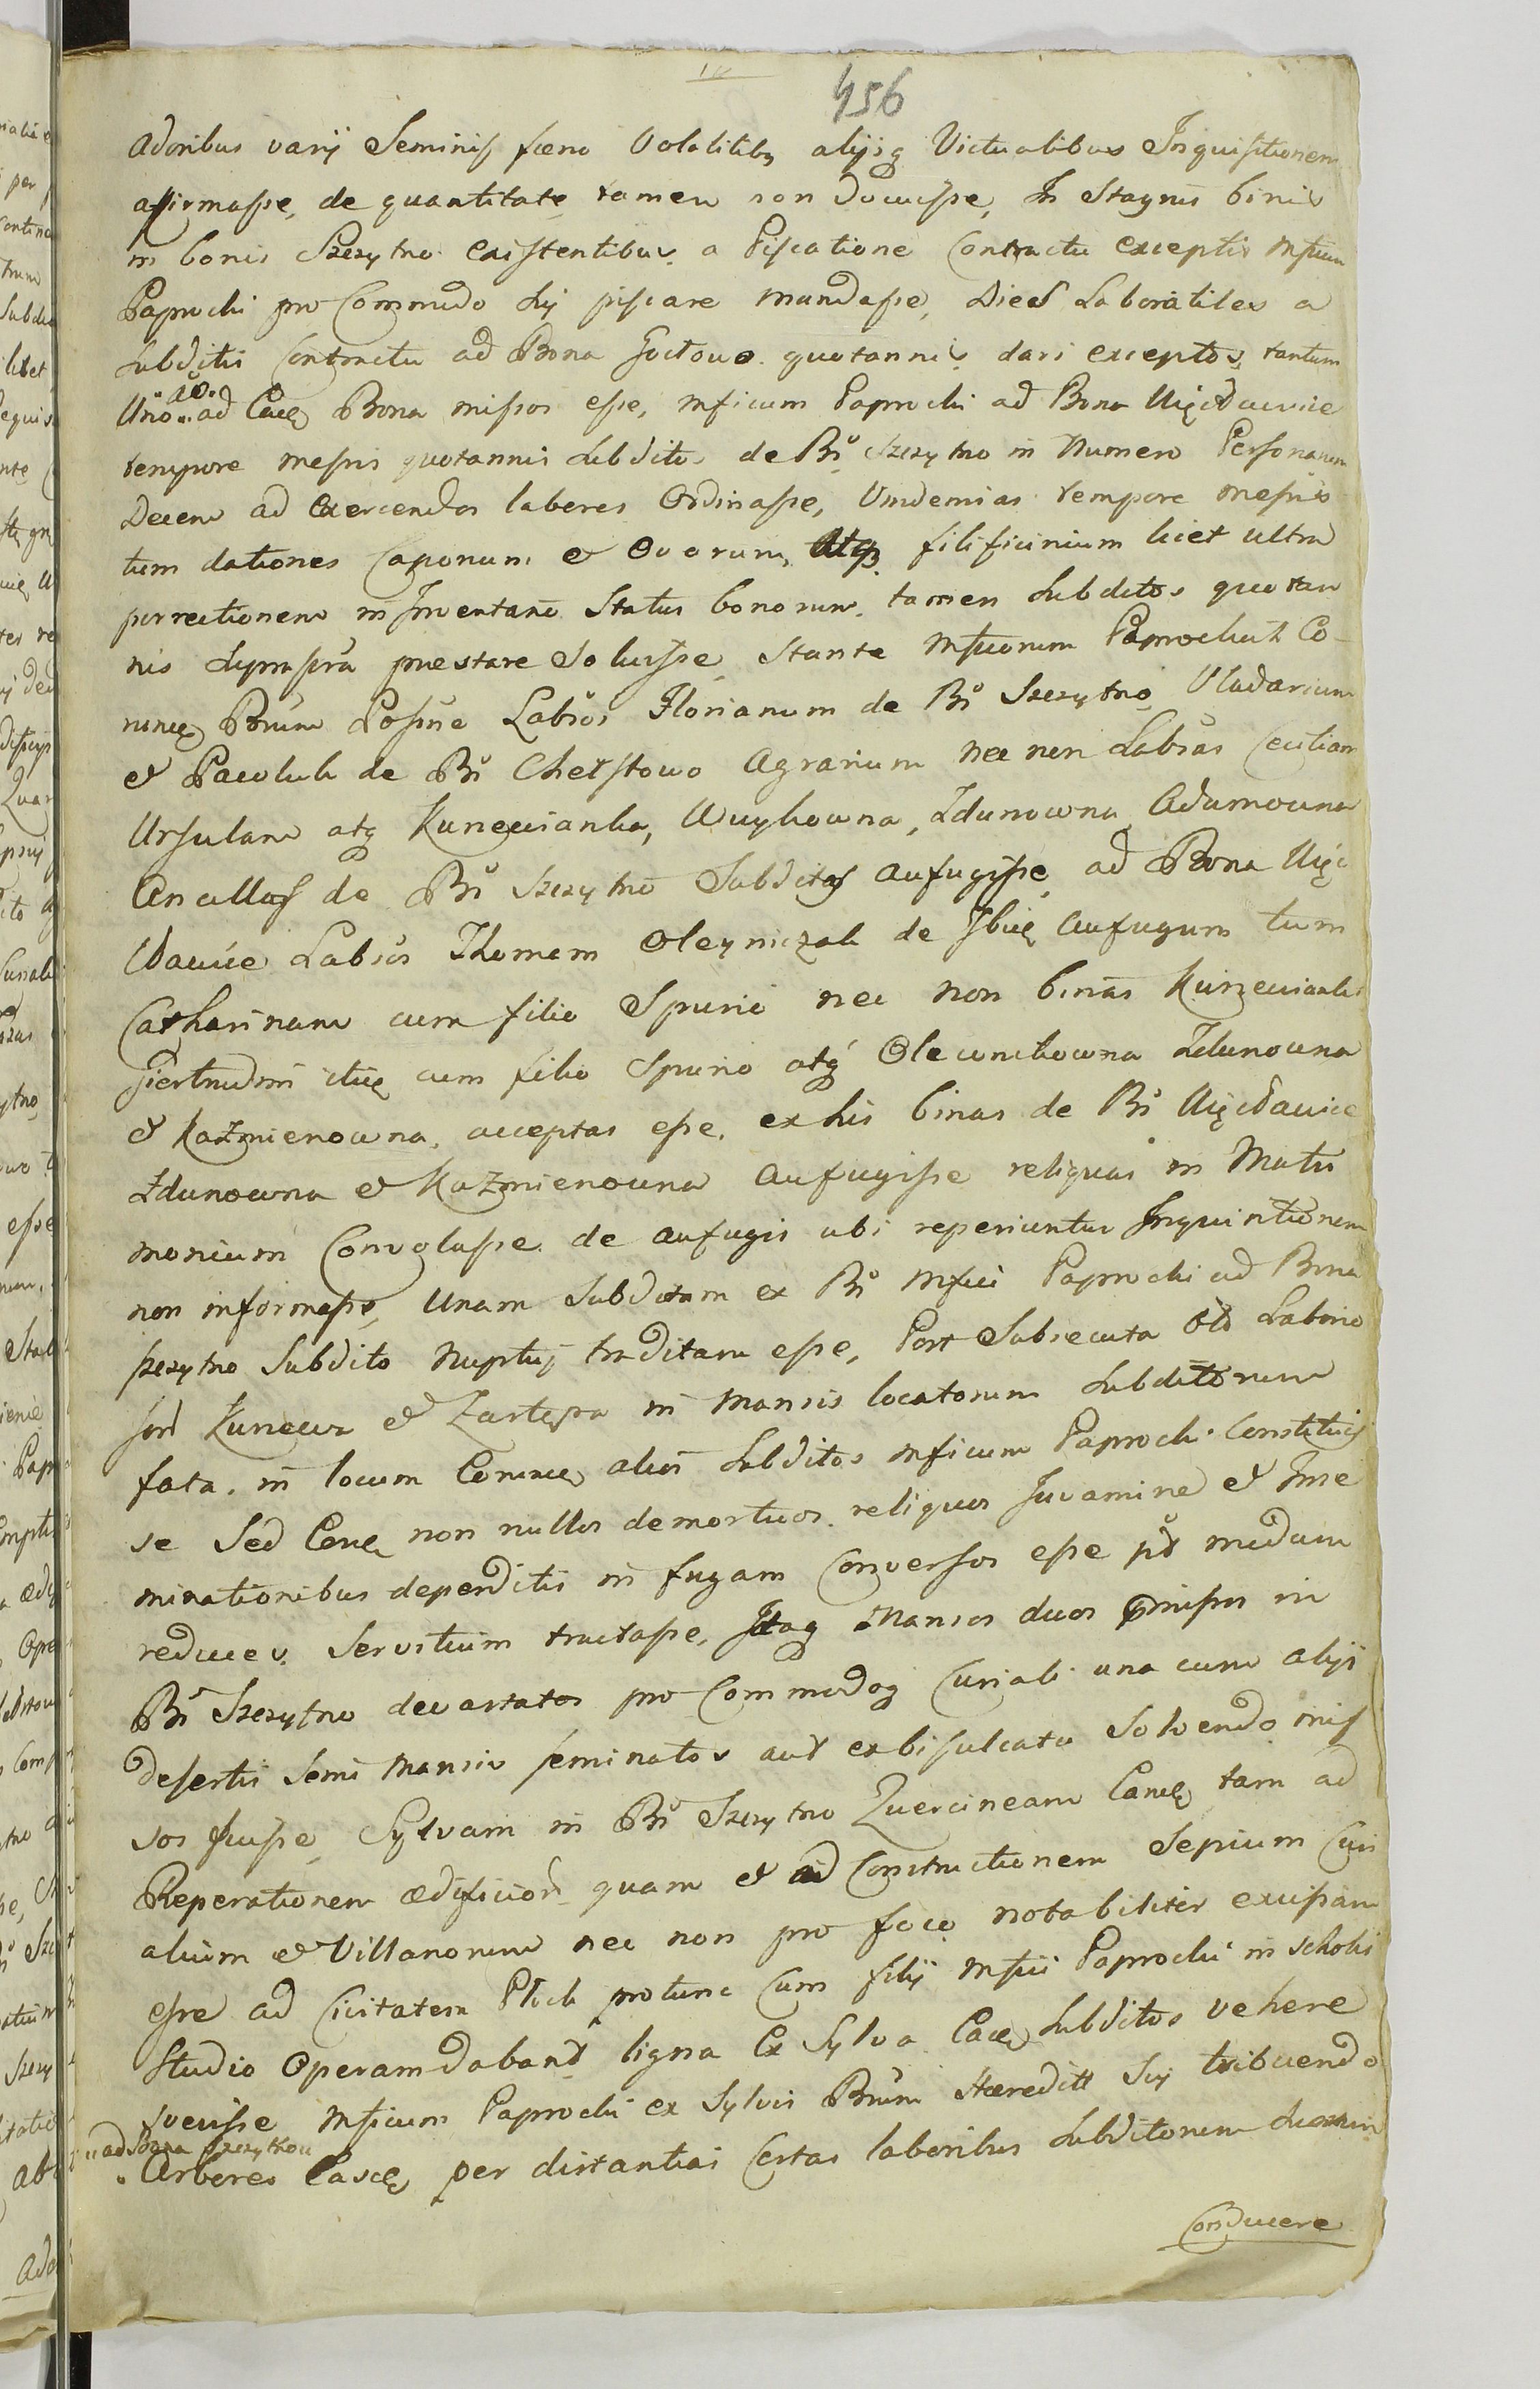 456
adoribus varij Seminis fœno Volatilibq alijsq Victualibus Inquisitionem
affirmasse, de quantitate tamen non docuisse, In Stagnis binis
in bonis Szczytno existentibus a Piscatione Contractu exceptis Mficum
Paprocki pro Commodo Sij piscare mandasse, Dies Laboratiles a
Subditis Contractu ad Bona Goctowo quotannis dari exceptos, tantum
Uno ao. ad Eace Bona missos esse, Mficum Paprocki ad Bona Więcławice
tempore messis quotannis Subditos de Bs Szczytno in Numero Personarum
Decem ad Exercendos labores Ordinasse, Vindemias tempore messis
tum dationes Caponum & Ovorum, Atq filificinium licet ultra
porrectionem in Inventario Status bonorum tamen Subditos quotan
nis Suprassa praestare Soluisse, Stante Mficorum Paprockich Co-
Bnum Possne Labsos Florianum de Bs Szczytno Vladarium
& Pawluk de Bs Chełstowo Agrarium nec non Labsas Ceciliam
Ursulam atq Kunewianka, Wuykowna, Zdunowna Adamowna
Ancillas de Bs Szczytno Subditas aufugisse, ad Bona Więc
ławice Labsos Thomam Oleyniczak de Ibię Aufugum tum
Catharinam cum filio Spurio nec non binas Kunewianki
Giertrudim cum filio Spurio atq Olewnikowna Zdunowna
& Kaźmierowna, acceptas esse, ex his binas de Bs Więcławice
Zdunowna & Kaźmierowna Aufugisse reliquas in Matri
monium Convolasse de aufugis ubi reperiuntur Inquisitionem
non informasse, Unam Subditam ex Bs Mfici Paprocki ad Bona
Szczytno Subdito Nuptuj traditam esse, Post Subsecuta Labrio
sor Kunewa & Zastępa in Mansis locatorum Subditorum
fata, in locum alios Subditos Mficum Paprocki Constituis
se Sed non nullos demortuos reliquos Juvamine & Inse
minationibus deperditis in fugam Conversos esse modum
reducer Servitium tractasse, Itaq Mansos duos in
Bs Szczytno devastatos pro Commodoq Curiali una cum alijs
desertis Semi Mansis seminatos aut exbisulcatu Solvendo mis
sos fuisse, Sylvam in Bs Szczytno Quercineam tam ad
Reperationem ædificior quam & ad Constructionem Sepium Curi
alium & Villanorum nec non pro foco notabiliter excisam
esse ad Civitatem Plock protunc Cum filij Mfici Paprocki in scholis
Studio Operam dabant ligna Ex Sylva Eace Subditos vehere
jussisse Mficum Paprocki ex Sylvis Bnum Hæreditt Sij tribuendo
ad Bona Szczytkou
Arbores per distantias Certas laboribus Subditorum
Conducere